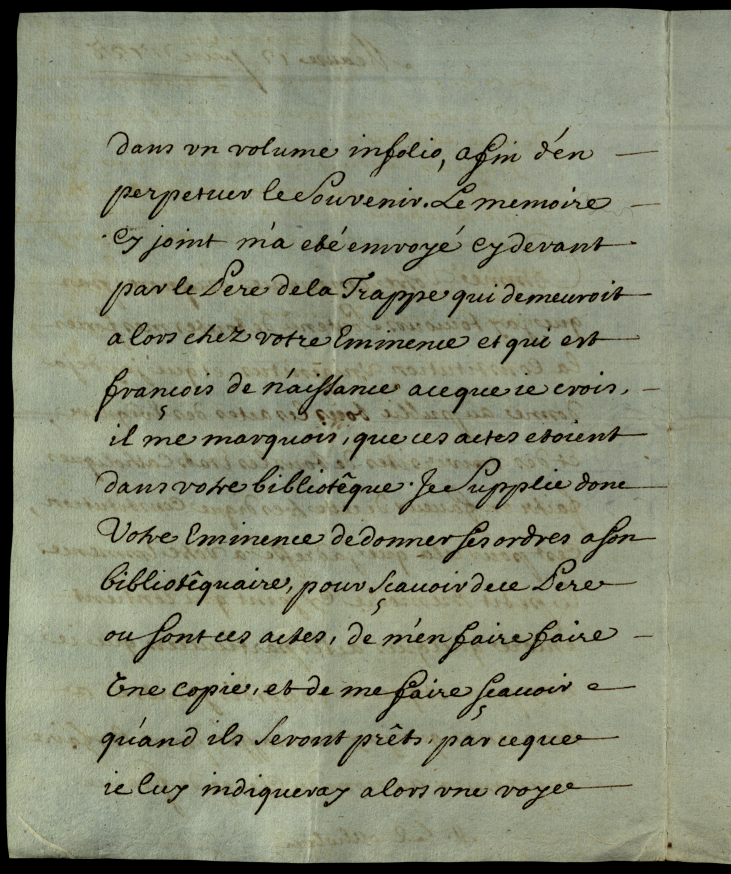 dans vn volume infolio, afin d'en
perpetuer le Souvenir. Le memoire
cy joint m'a eté envoyé cy devant
par le Pere de la Trappe qui demeuroit
alors chez votre Eminence et qui est
françois de n'aissance a ce que ie crois,
il me marquois, que ces actes etoient
dans votre bibliotêque. Je Supplie donc
Votre Eminence de donner ses ordres a son
bibliotêquaire, pour sçauoir de ce Pere
ou sont ces actes, de m'en faire faire
Vne copie, et de me faire sçauoir
quand ils seront prêts, par ce que
ie luy indiqueray alors vne voye